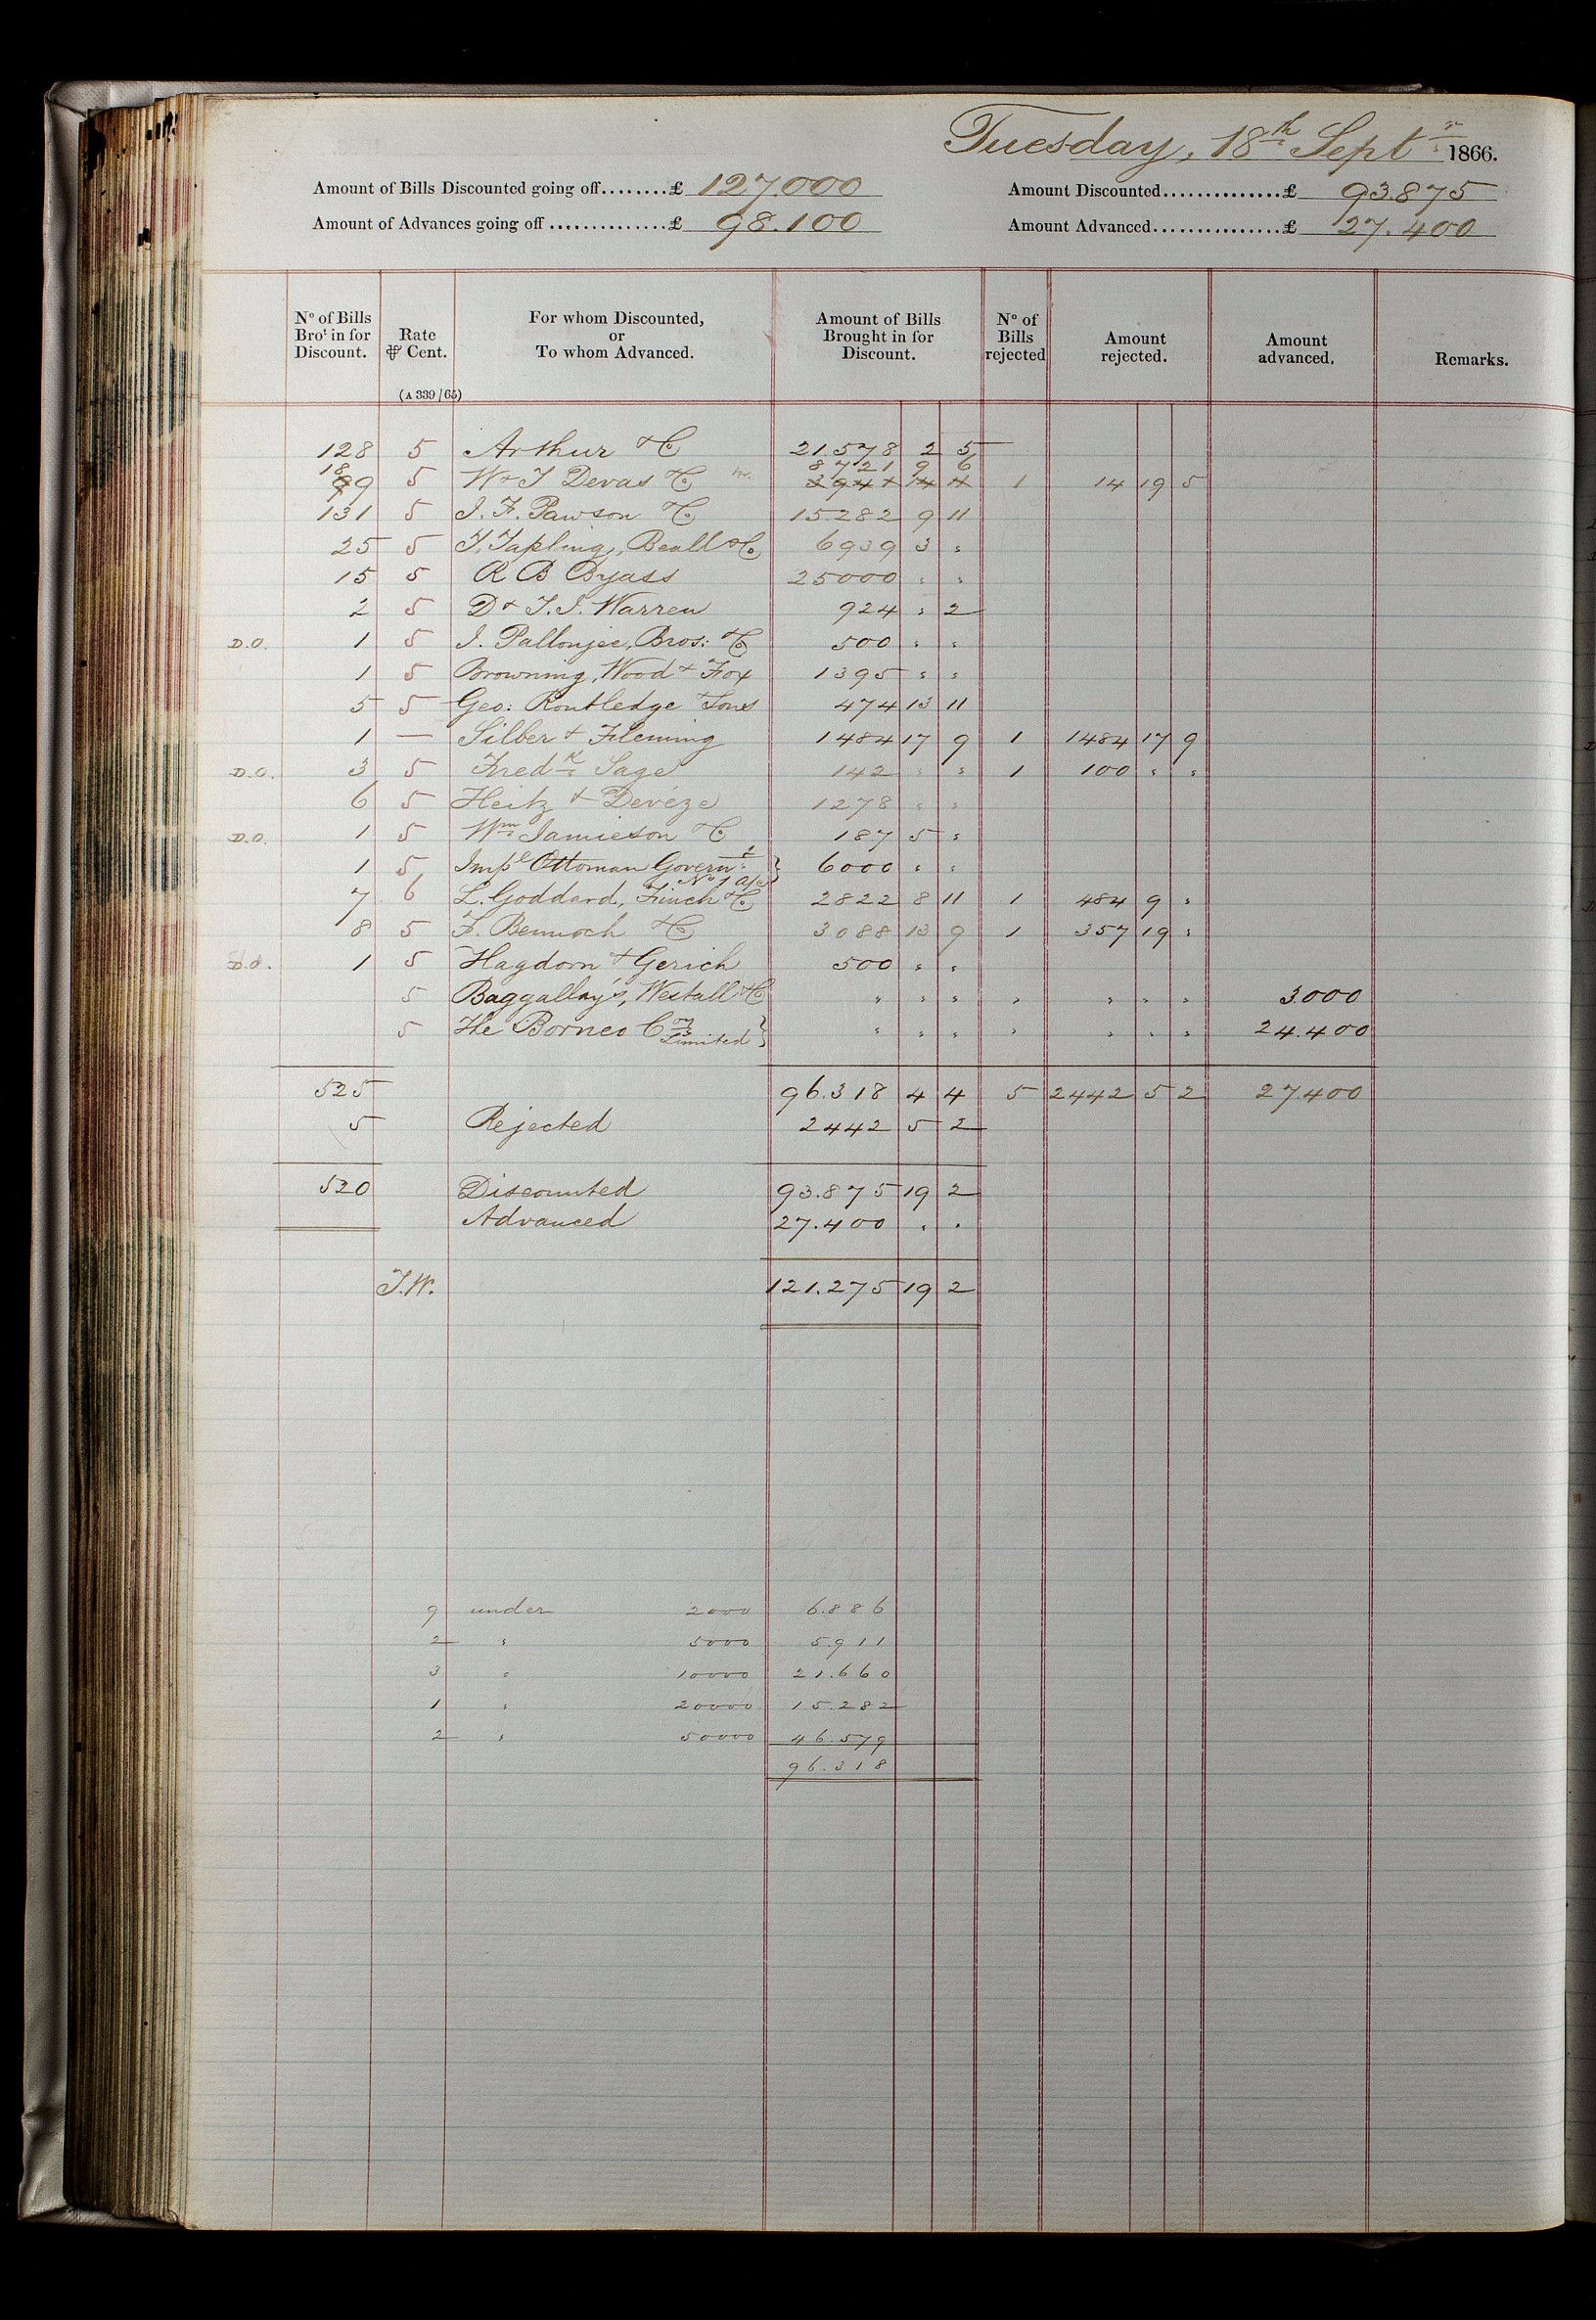 Tuesday, 18th Septr 1866.
Amount of Bills Discounted going off........£ 127.000 Amount Discounted..............£ 93.875
Amount of Advances going off ..............£ 98.100 Amount Advanced...............£ 27.400
No of Bills Brot in for Discount. Rate ⅌ Cent. For whom Discounted, or To whom Advanced. Amount of Bills Brought in for Discount. No of Bills rejected Amount rejected. Amount advanced. Remarks.
(A 339/65)
128 5 Arthur & Co 21.578 2 5
189 5 W & T Devas & Co 8721 9 6 1 14 19 5
131 5 J. F. Pawson & Co 15.282 9 11
25 5 T. Tapling, Beall & Co 6939 3 "
15 5 R B Byass 25000 " "
2 5 D & T. J. Warren 924 " 2
D.O. 1 5 J. Pallonjee, Bros: & Co 500 " "
1 5 Browning, Wood & Fox 1395 " "
5 5 Geo: Routledge & Sons 474 13 11
1 — Silber & Fleming 1484 17 9 1 1484 17 9
D.O. 3 5 Fredk Sage 142 " " 1 100 " "
6 5 Heitz & Devéze 1278 " "
D.O. 1 5 Wm Jamieson & Co 187 5 "
1 5 Impl Ottoman Governt 6000 " "
No 1 a/c
7 6 L. Goddard, Finch & Co 2822 8 11 1 484 9 "
8 5 F. Bennoch & Co 3088 13 9 1 357 19 "
D.O. 1 5 Hagdorn & Gerich 500 " "
5 Baggallays, Westall & Co " " " " " " " 3.000
5 The Borneo Coy Limited " " " " " " " 24.400
525 96.318 4 4 5 2442 5 2 27.400
5 Rejected 2442 5 2
520 Discounted 93.875 19 2
Advanced 27.400 " "
T.W. 121.275 19 2
9 under 2000 6.886
2 " 5000 5.911
3 " 10000 21.660
1 " 20000 15.282
2 " 50000 46.579
96.318